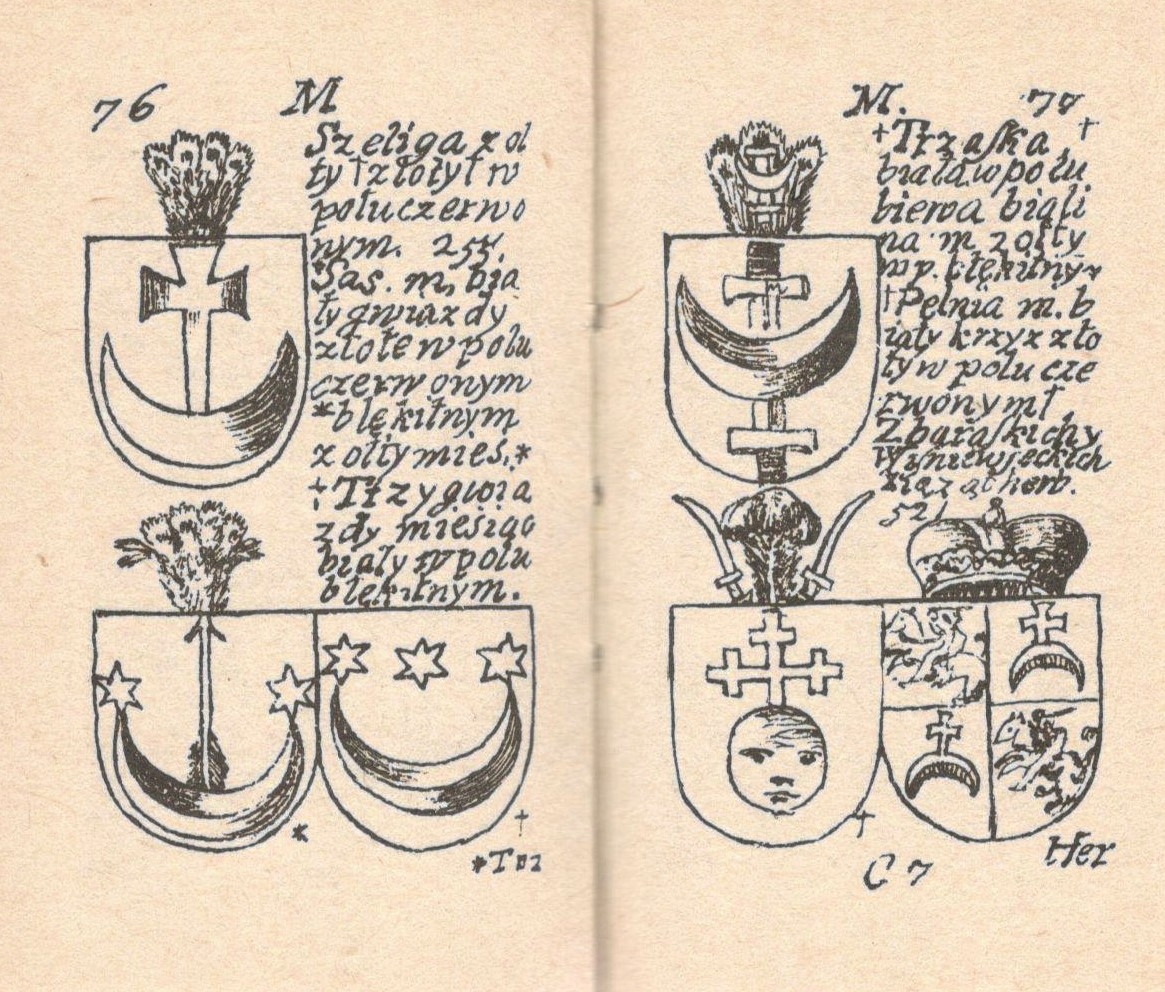 76 M
Szeliga zol
ty † złoty † w
polu czerwo
nym. 255.
*Sas. m, bia
ły gwiazdy
złote w polu
czerwonym
*błękitnym
zolty mies.*
†Trzy gwia
zdy miesiąc
biały w polu
błękitnym.
*
†
M. 77
†Trzaſka †
biała w polu
biena biali
na m zolty
w p. błękitny
†Pełnia m. b
iały krzyz zło
ty w polu cze
rwonym †
Zbaraſkichy
Wiſniewſeckich
herb.
52
†
C 7
Her